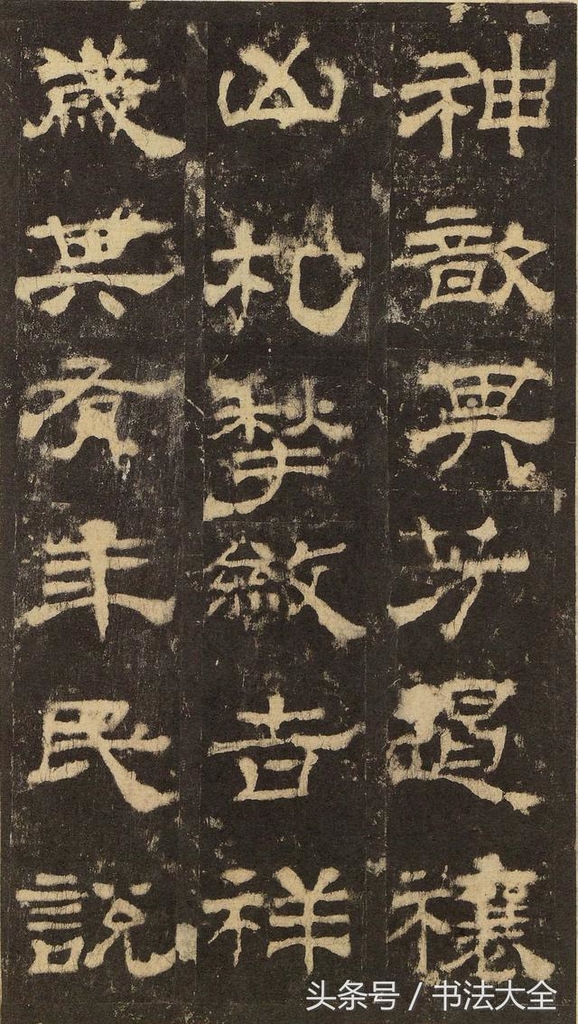 神歆其芳遏禳
凶札揫斂吉祥
歲其有年民說
头条号 / 书法大全